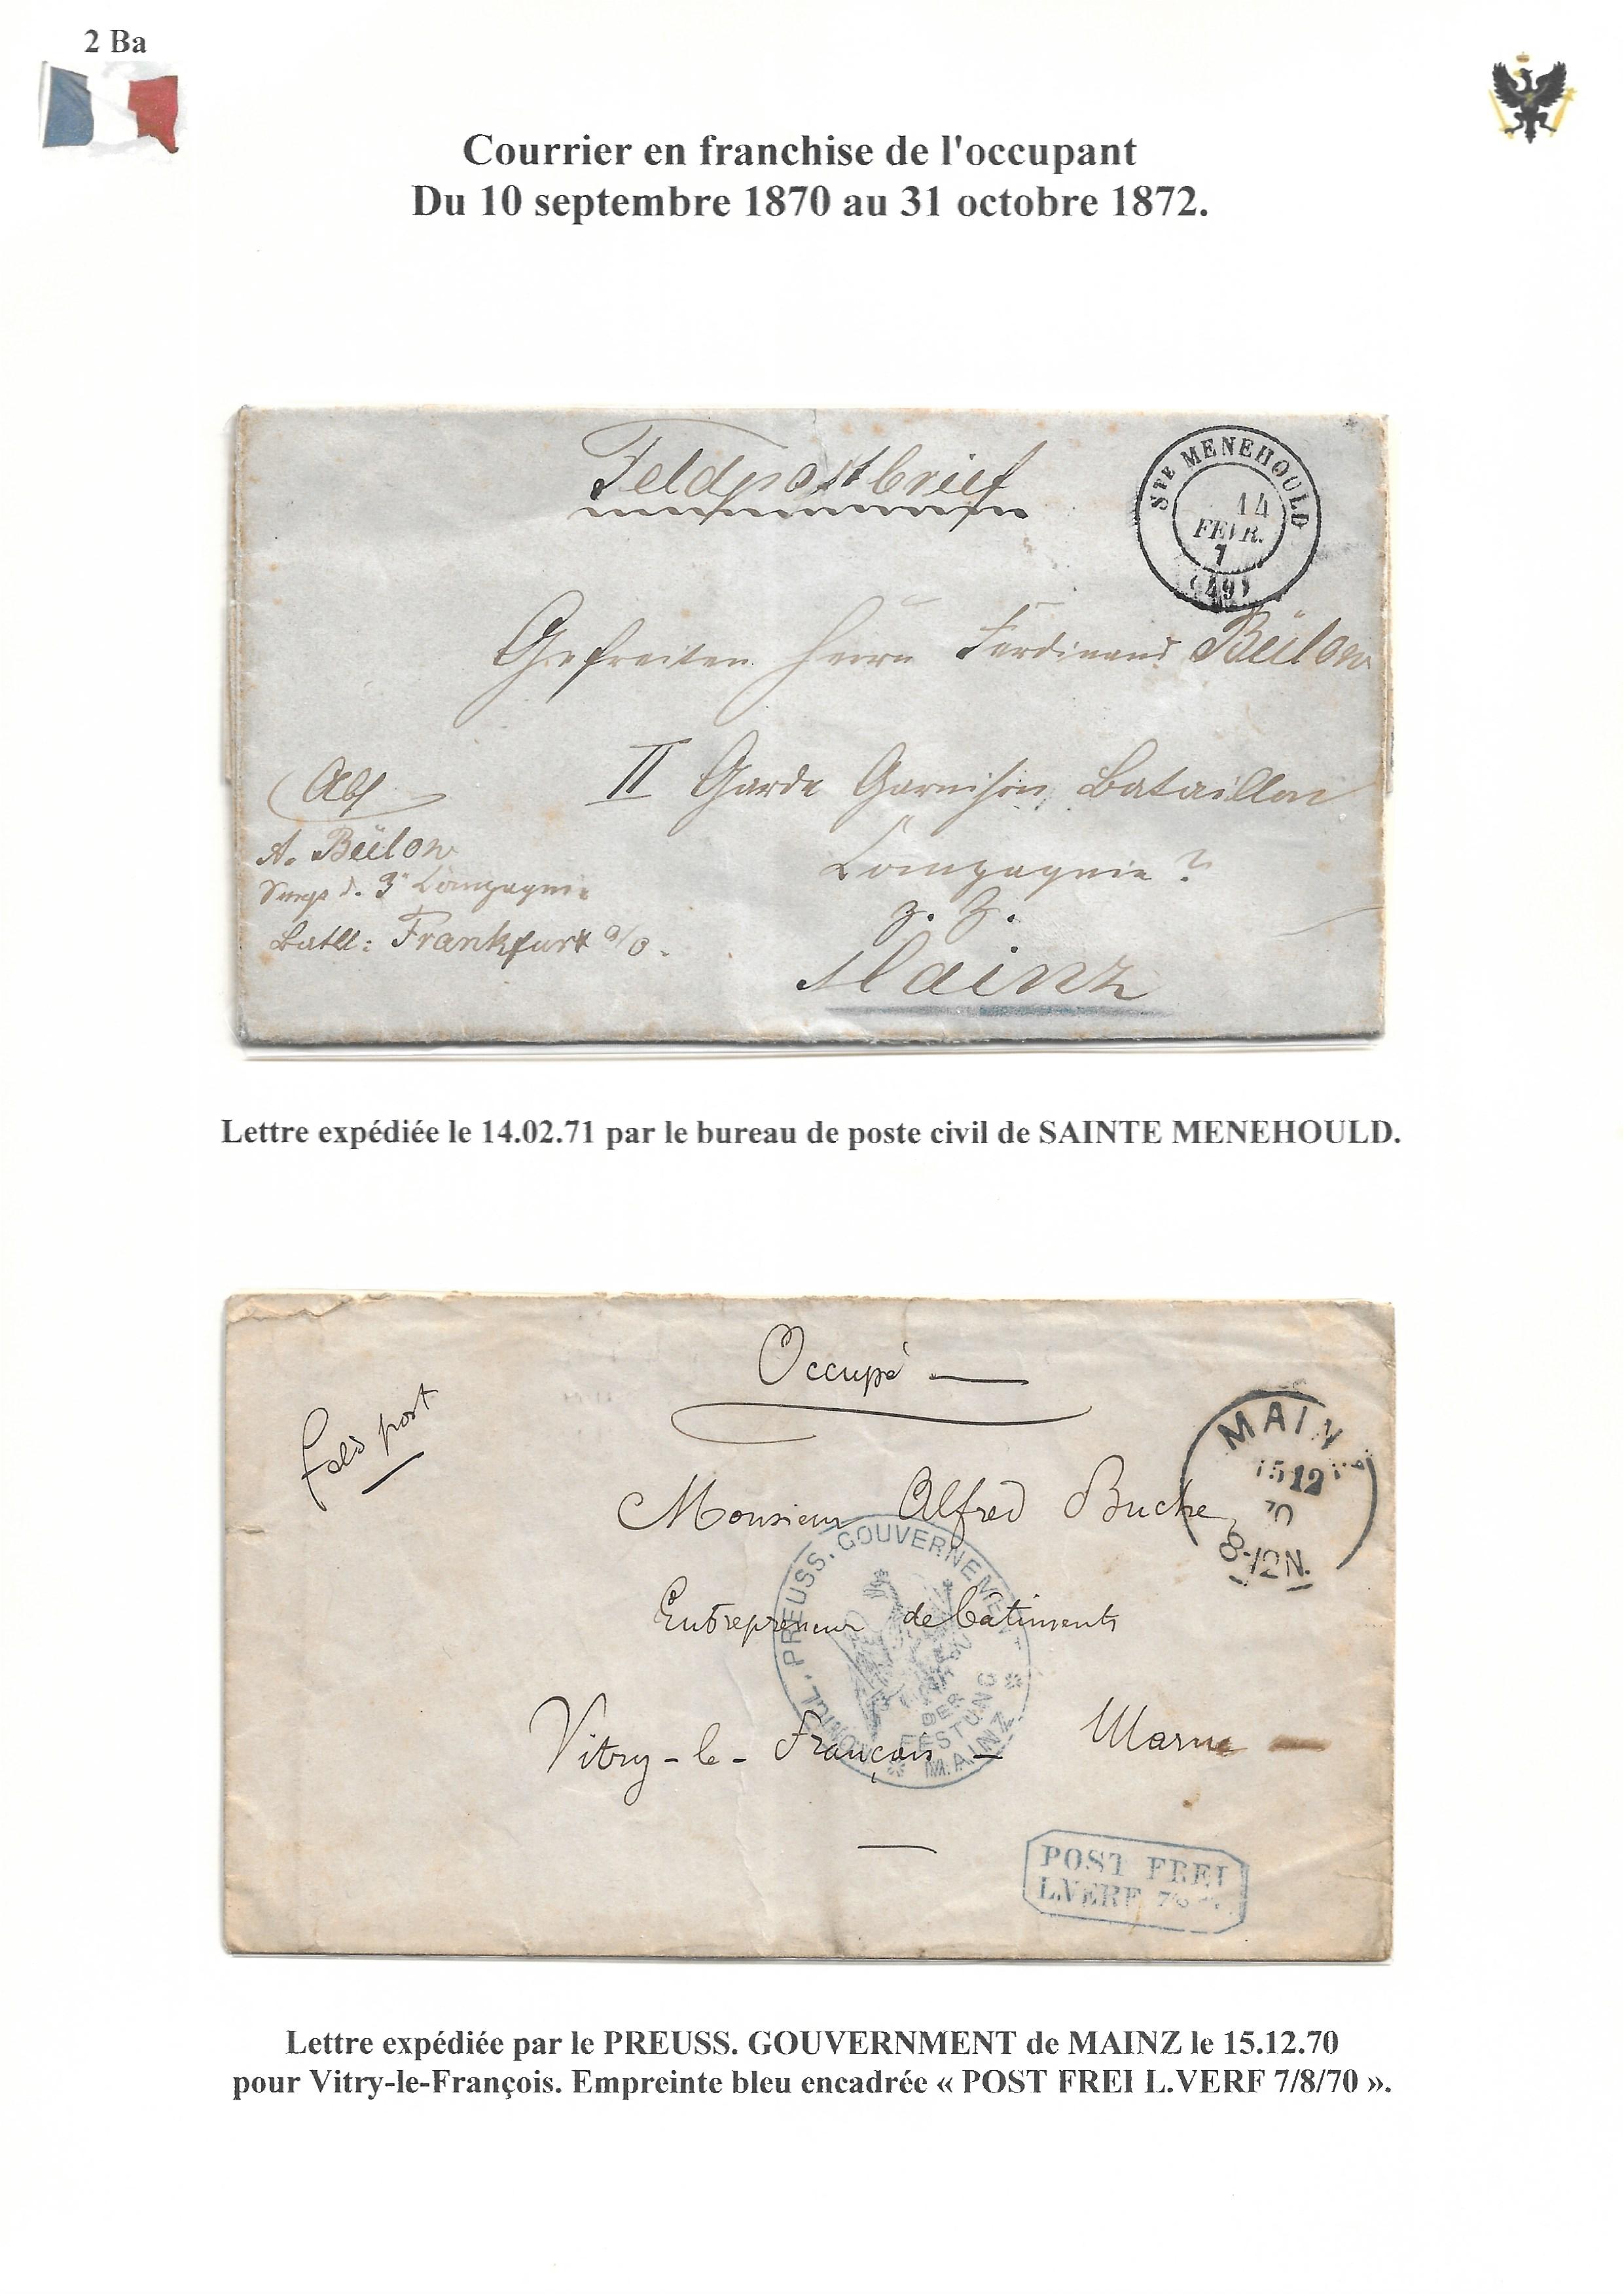 2 Ba
Courrier en franchise de l'occupant
Du 10 septembre 1870 au 31 octobre 1872.
Feldpostbrief
STE MENEHOULD
14
FEVR.
(49)
Gefreiten Herrn Ferdinand Bülow
II Garde Garnison Bataillon
Compagnie ?
z. Z.
Mainz
Abs
A. Bülow
d. 3t Compagnie
Batll: Frankfurt a/o.
Lettre expédiée le 14.02.71 par le bureau de poste civil de SAINTE MENEHOULD.
Occupé
port
MAIN
15 12
70
8-12N.
Monsieur Alfred Buche
Entrepreneur de bâtiments
Vitry-le-François - Marne
KÖNIGL. PREUSS. GOUVERNEMENT
DER
FESTUNG
MAINZ
POST FREI
L.VERF
Lettre expédiée par le PREUSS. GOUVERNMENT de MAINZ le 15.12.70
pour Vitry-le-François. Empreinte bleu encadrée « POST FREI L.VERF 7/8/70 ».